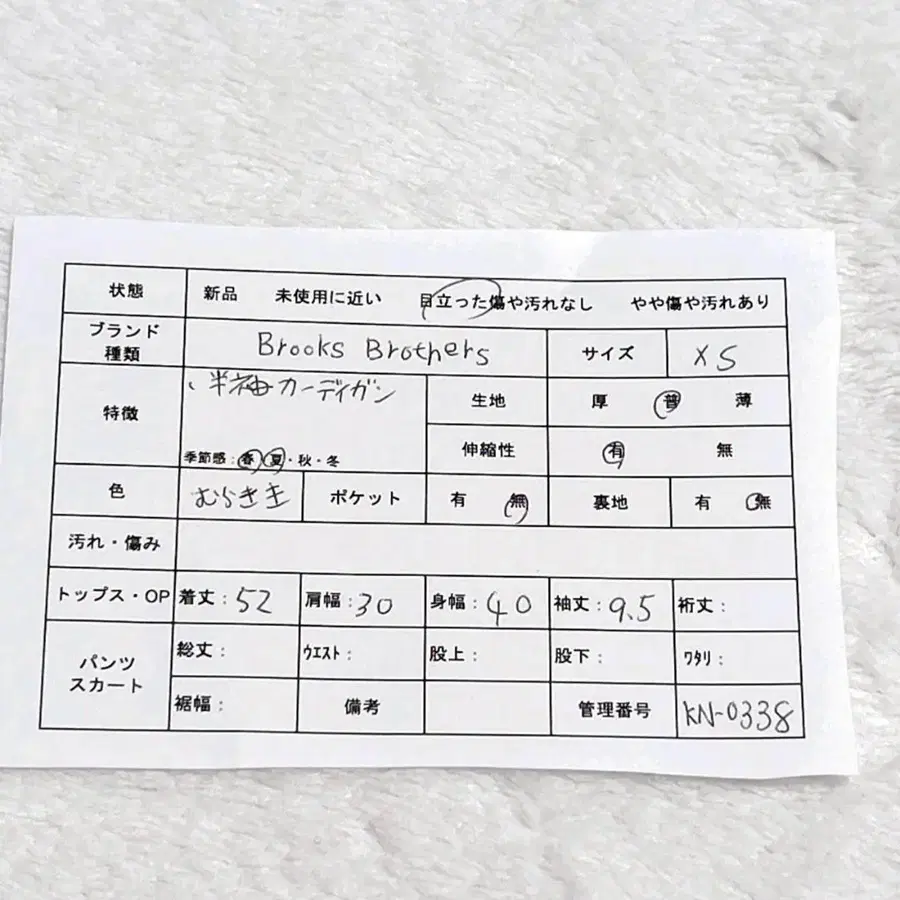 状態 新品 未使用に近い 目立った傷や汚れなし やや傷や汚れあり
ブランド
種類 Brooks Brothers サイズ XS
特徴 、半袖カーディガン 生地 厚 普 薄
季節感：春・夏・秋・冬 伸縮性 有 無
色 むらさき ポケット 有 無 裏地 有 無
汚れ・傷み
トップス・OP 着丈：52 肩幅：30 身幅：40 袖丈：9.5 裄丈：
パンツ
スカート 総丈： ｳｴｽﾄ： 股上： 股下： ﾜﾀﾘ：
裾幅： 備考 管理番号 KN-0338